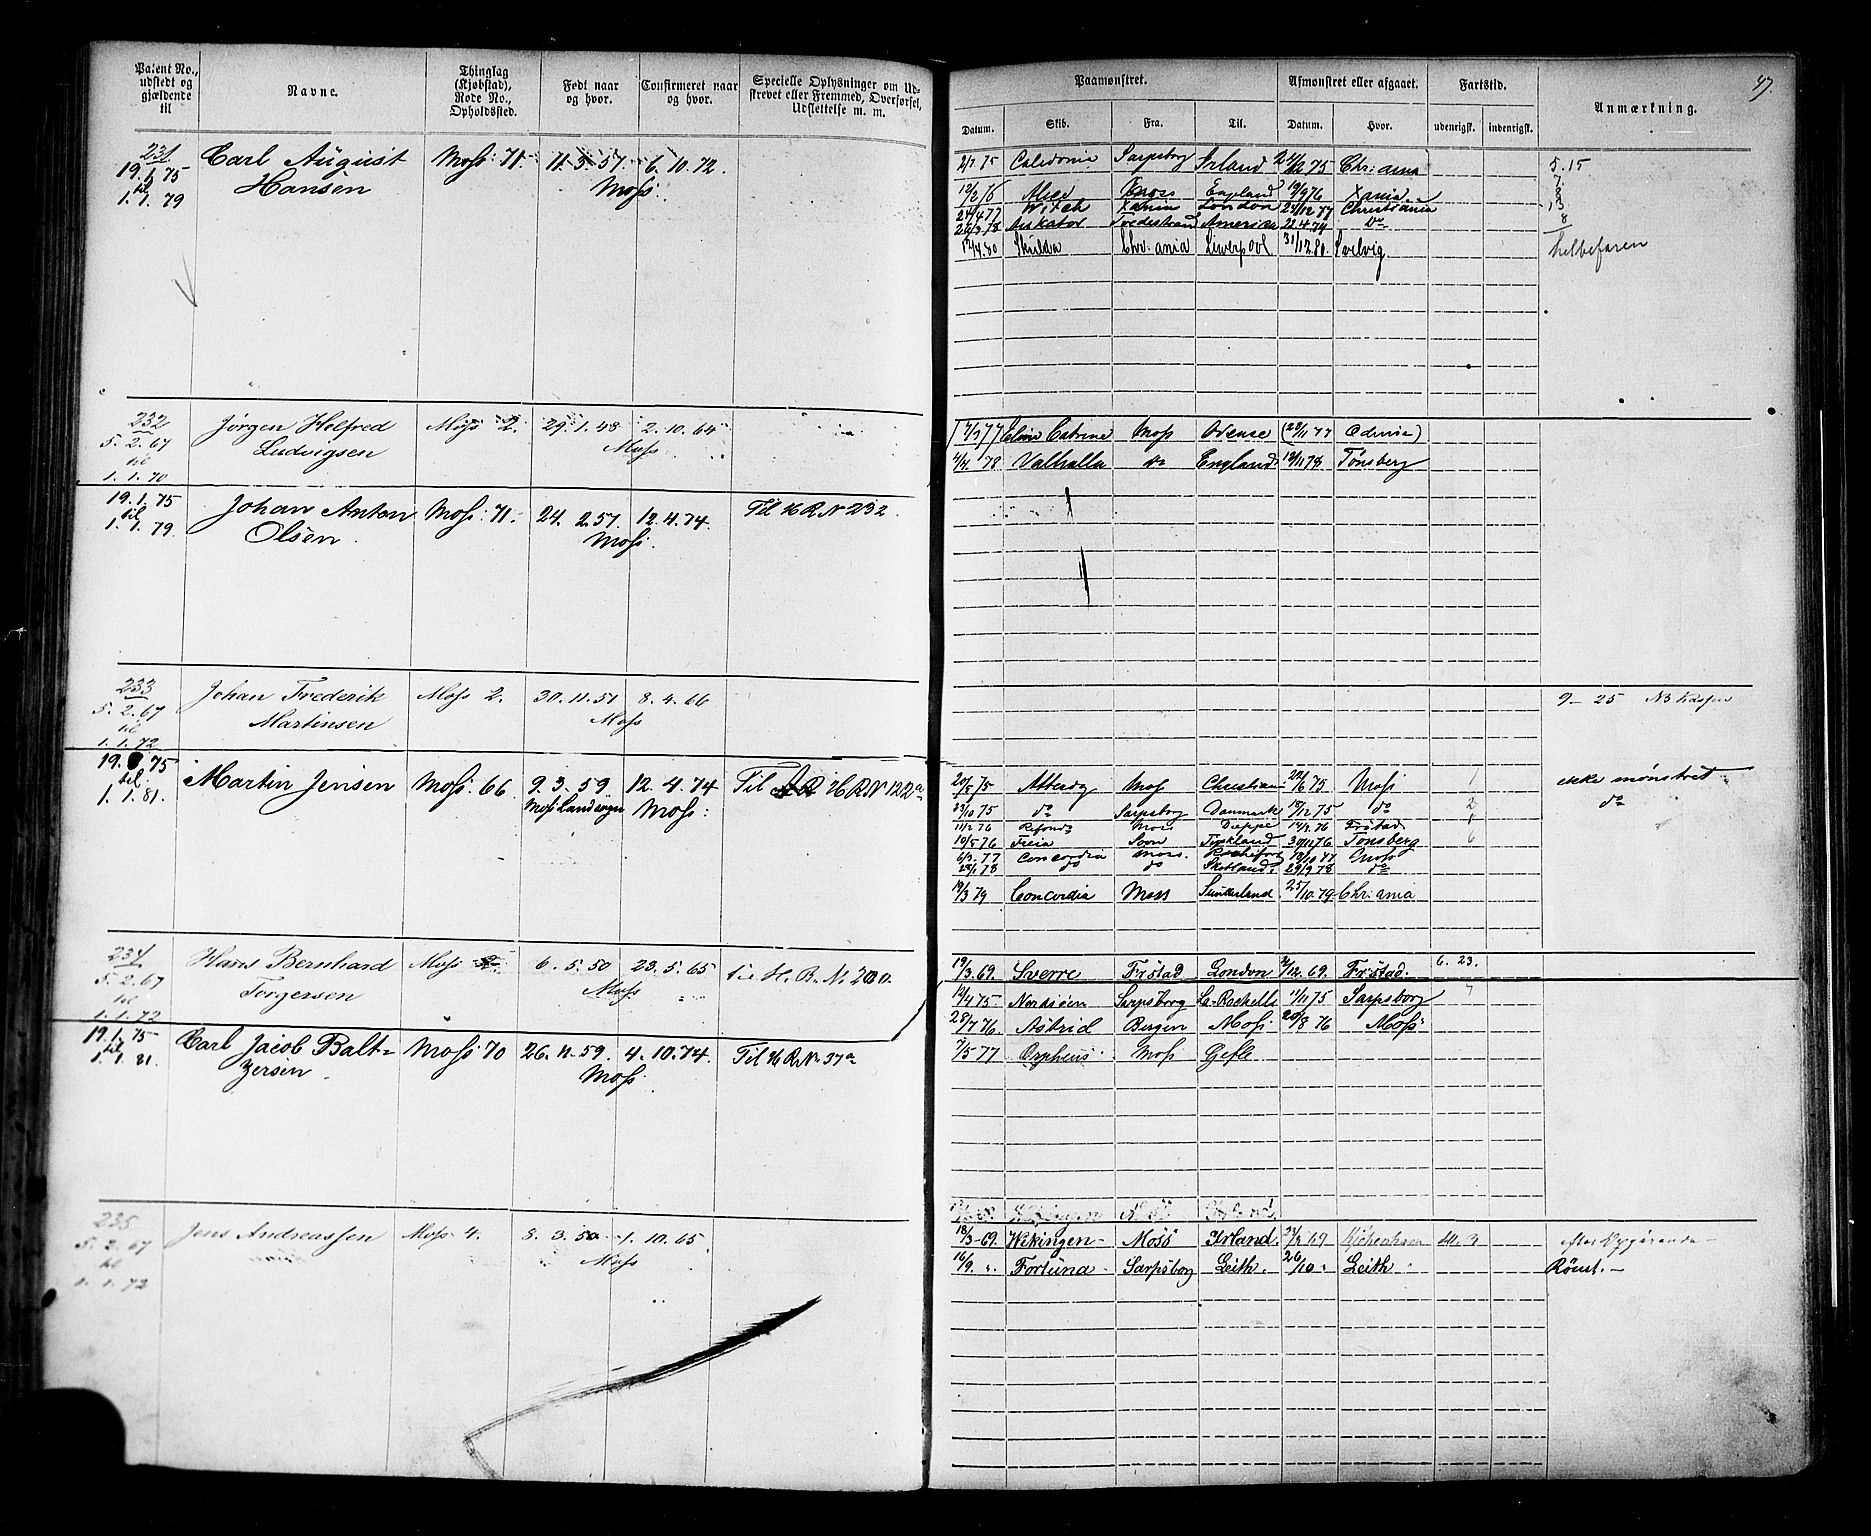 47.
Patent No., udstedt og gjældende til
Navne.
Thinglag (Kjøbstad), Rode No., Opholdssted.
Født naar og hvor.
Confirmeret naar og hvor.
Specielle Oplysninger om Udstrevet eller Fremmed, Overførsel, Udslettelse m. m.
Paamønstret.
Afmønstret eller afgaaet.
Fartstid.
Anmærkning.
Datum. Skib. Fra. Til. Datum. Hvor. udenrigsk. indenrigsk.
231 Carl August Moss: 71. 11.3.57. 6.10.72.
19.1.75 Hansen Moss:
til
1.1.79
2/7 75 Caledonia Sarpsborg Irland 75 Chr: ania 5.15
12/2 76 Alice Moss England 19/9 76 Xania 7
24/4 77 Witch Xania London 24/12 77 Christiania
26/3 78 Tvedestrand Amerika 22.4.79 Do 8
12/4.80 Skulda Chr. ania Liverpool 31/12.80. Svelvig helbefaren
232 Jørgen Holfred Moss 2. 29.1.48 2.10.64
5.2.67 Ludvigsen Moss
til
1.1.70
77 Catrine Moss Odense 77 Odense)
78 Valhalla Do England 12/11 78 Tønsberg
19.1.75 Johan Anton Moss: 71. 24.2.57. 12.4.74. Til H R No 232.
til Olsen Moss:
1.1.79.
233 Johan Frederik Moss 2. 30.11.51 8.4.66
5.2.67 Martinsen Moss
til
1.1.72
9 - 25
19.1.75 Martin Jensen Moss: 66 9.3.59. 12.4.74 Til H R No 122a
til Moss Landsogn Moss:
1.1.81.
20/5 75 Moss Christian 75 Moss 1 ikke mønstret
23/10 75 do Sarpsborg Danmark 75 do 2 do
11/2 76 Moss Dieppe 76 Frstad 1
10/5 76 Freia Soon 30/11 76 Tønsberg 6
6/3 77 Concordia Moss. 77 Moss
78 do do Skotland. 29/9 78 do
19/3 79 Concordia Moss Sunderland 25/10.79 Chr: ania
234 Hans Bernhard Moss 6.5.50 23.5.65 til H. R. No 200.
5.2.67 Torgersen Moss
til
1.1.72
19/3.69. Sverre Frstad London 12.69. Frstad. 6. 23.
19.1.75 Carl Jacob Balt= Moss: 70 26.11.59. 4.10.74. Til H R No 37a
til zersen Moss:
1.1.81.
12/4 75. Sarpsborg La Rochelle 11/11 75 Sarpsborg 7
28/7 76 Astrid Bergen Moss. 8 76 Moss:
5 77 Orpheus Moss Gefle
235 Jens Andreassen Moss 4. 8.3.50 1.10.65.
5.2.67 Moss
til
1.1.72
18/3 69. Wikingen Moss Irland. 69 Kiöbenhavn
16/9. " Fortuna Sarpsborg Leith. 26/10 " Leith Rømt.